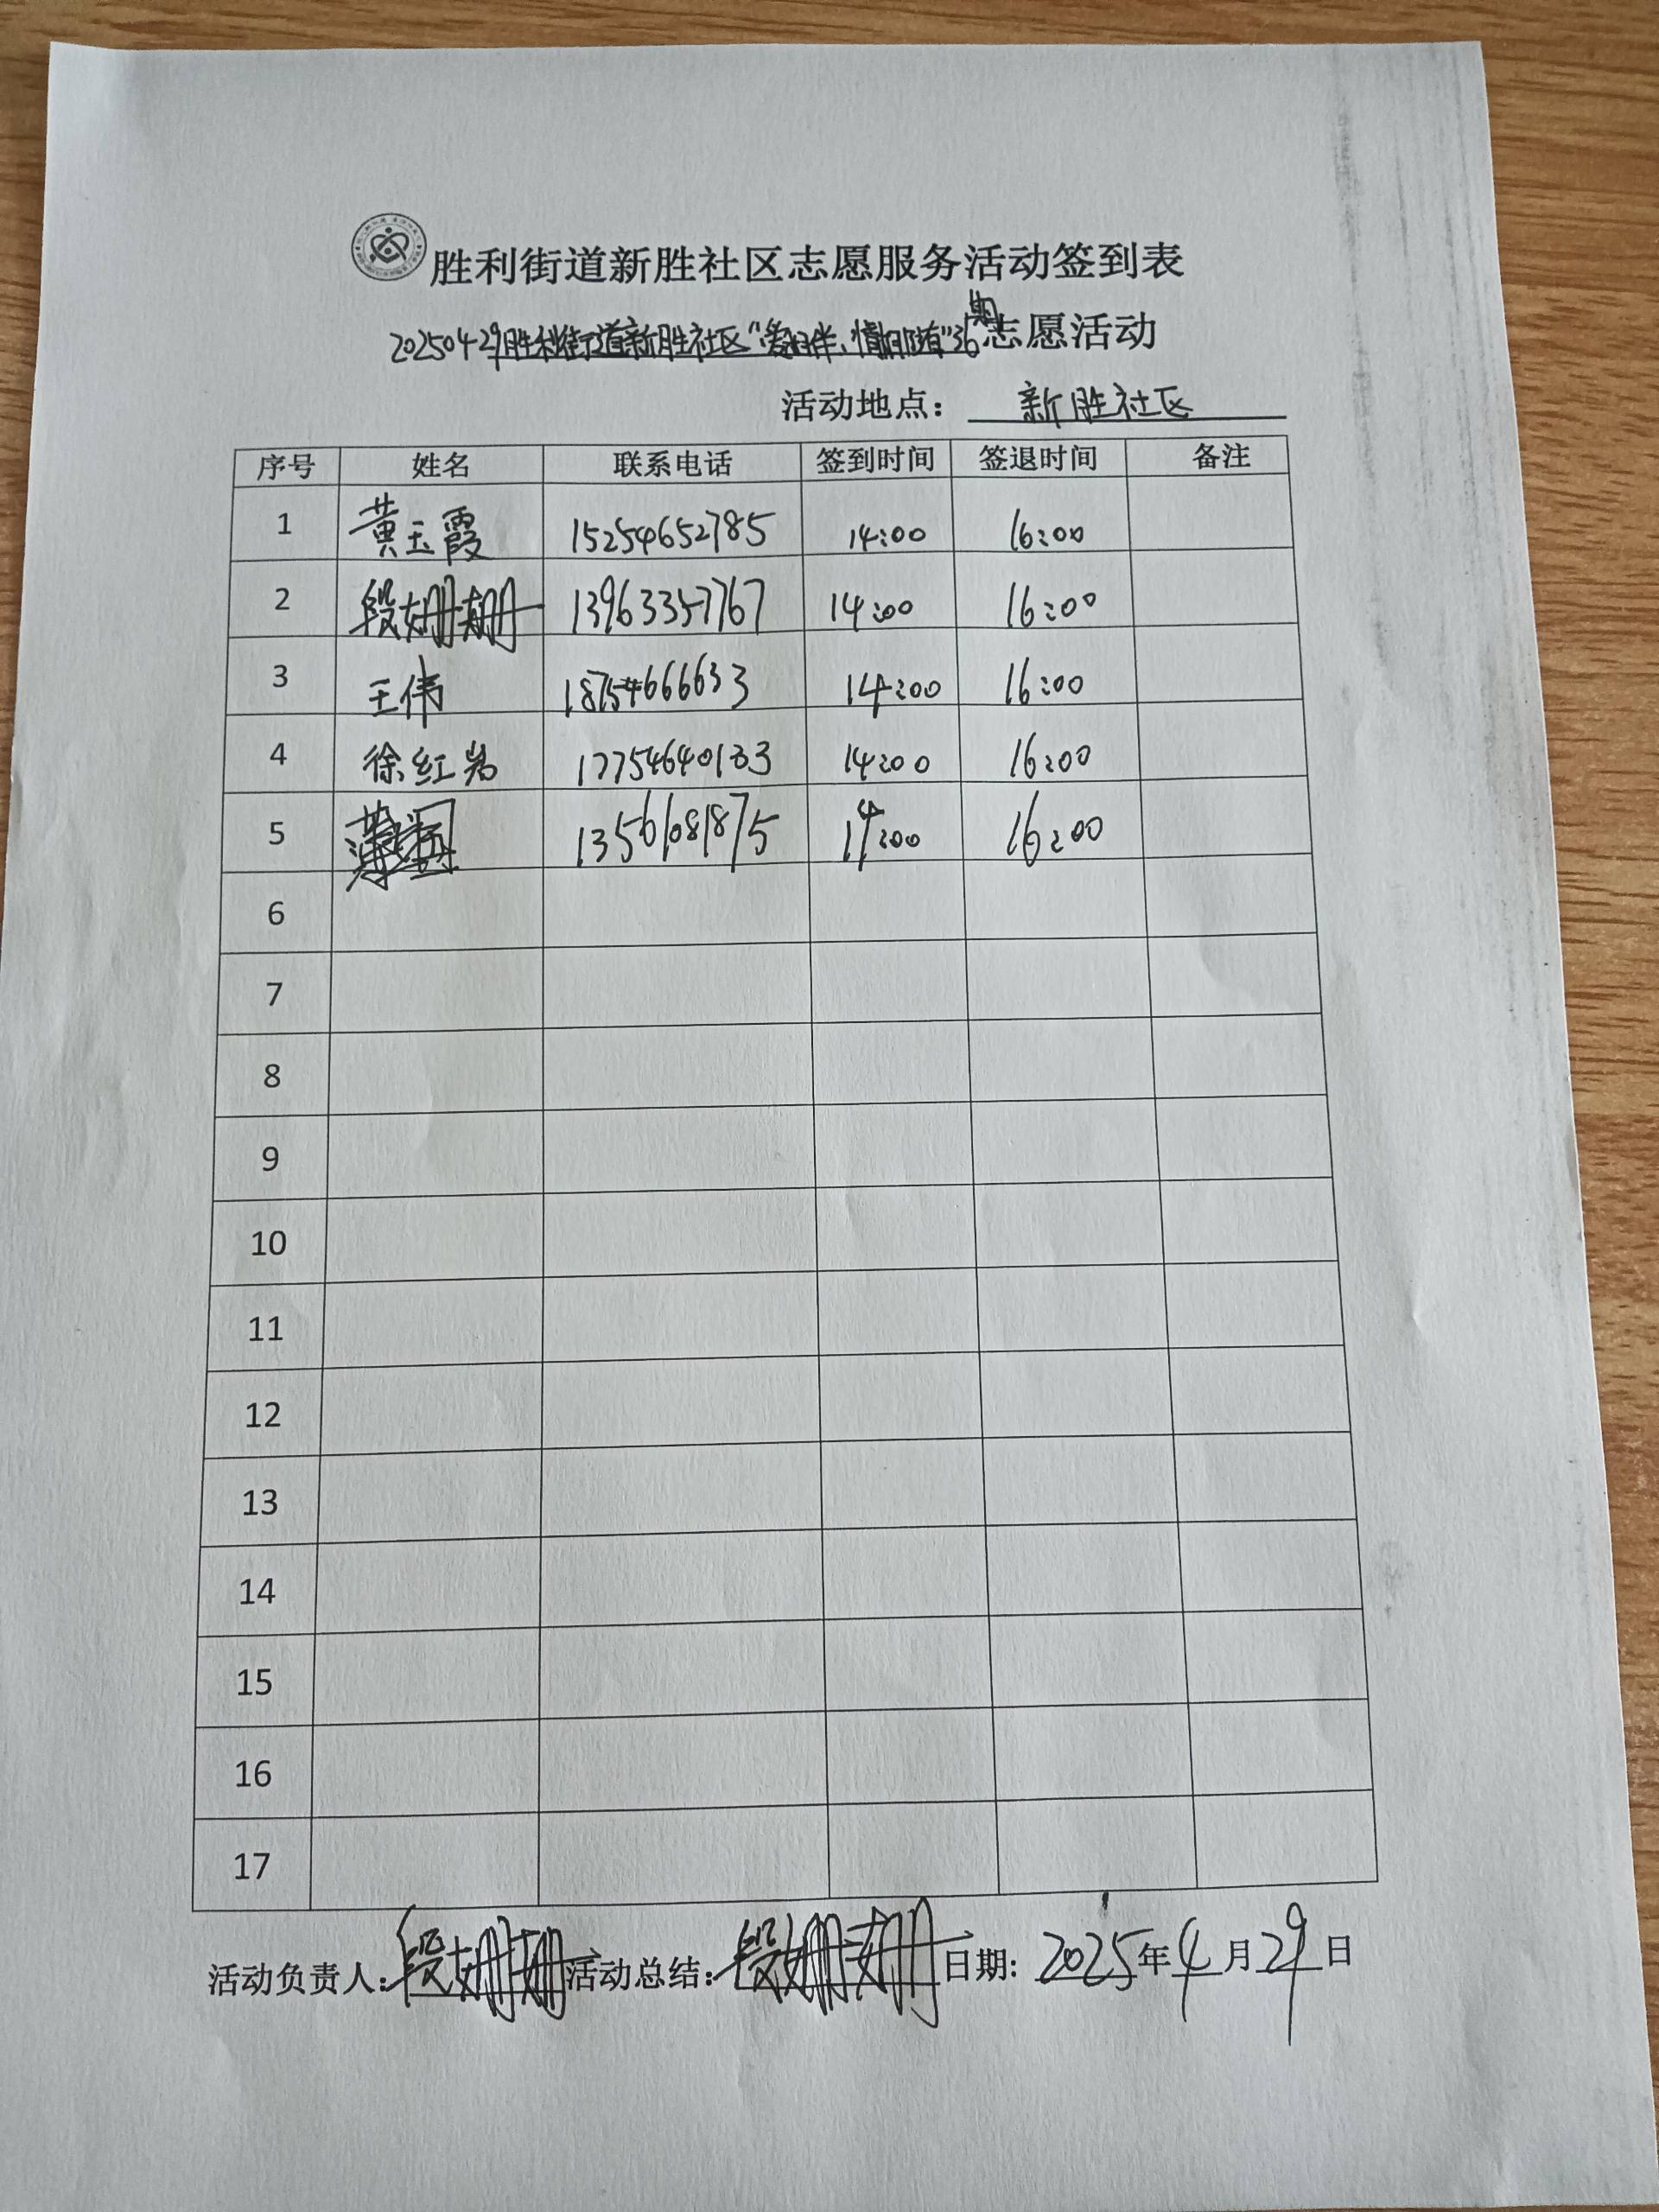 胜利街道新胜社区志愿服务活动签到表
20250429胜利街道新胜社区“爱相伴、情相随”36期志愿活动
活动地点: 新胜社区
序号 姓名 联系电话 签到时间 签退时间 备注
1 黄玉霞 15254652785 14:00 16:00
2 段姗姗 13963357767 14:00 16:00
3 王伟 18754666633 14:00 16:00
4 徐红岩 17754640133 14:00 16:00
5 13561081875 14:00 16:00
6
7
8
9
10
11
12
13
14
15
16
17
活动负责人: 段姗姗 活动总结: 段姗姗 日期: 2025年4月29日